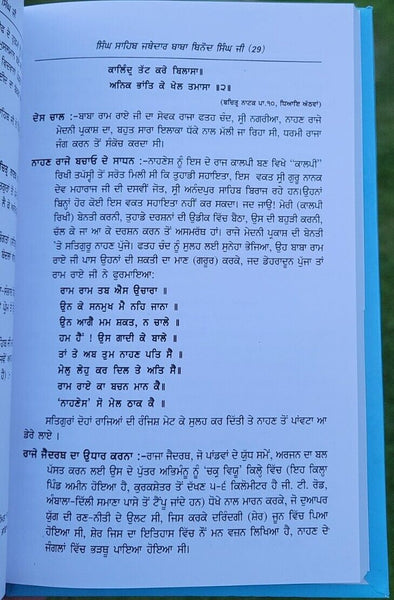 ਸਿੰਘ ਸਾਹਿਬ ਜਥੇਦਾਰ ਬਾਬਾ ਬਿਨੋਦ ਸਿੰਘ ਜੀ (29)
ਕਾਲਿੰਦ੍ਰ ਤੱਟ ਕਰੇ ਬਿਲਾਸਾ॥
ਅਨਿਕ ਭਾਂਤਿ ਕੇ ਖੇਲ ਤਮਾਸਾ ॥੨॥
(ਬਚਿਤ੍ਰ ਨਾਟਕ ਪਾ.੧੦, ਧਿਆਇ ਅੱਠਵਾਂ)
ਦੋਸ ਚਾਲ :-ਬਾਬਾ ਰਾਮ ਰਾਏ ਜੀ ਦਾ ਸੇਵਕ ਰਾਜਾ ਫਤਹ ਚੰਦ, ਸ੍ਰੀ ਨਗਰੀਆ, ਨਾਹਣ ਰਾਜੇ
ਮੇਦਨੀ ਪ੍ਰਕਾਸ਼ ਦਾ, ਬਹੁਤ ਸਾਰਾ ਇਲਾਕਾ ਧੱਕੇ ਨਾਲ ਮੱਲੀ ਜਾ ਰਿਹਾ ਸੀ, ਧਰਮੀ ਰਾਜਾ
ਜੰਗ ਕਰਨ ਤੋਂ ਸੰਕੋਚ ਕਰਦਾ ਸੀ।
ਨਾਹਣ ਰਾਜੇ ਬਚਾਓ ਦੇ ਸਾਧਨ :-ਨਾਹਣੇਸ ਨੂੰ ਇਸ ਦੇ ਰਾਜ ਕਾਲਪੀ ਬਣ ਵਿਖੇ "ਕਾਲਪੀ"
ਰਿਖੀ ਤਪੱਸ੍ਰੀ ਤੋਂ ਸਰੋਤ ਮਿਲੀ ਸੀ ਕਿ ਤੁਹਾਡੀ ਸਹਾਇਤਾ, ਇਸ ਵਕਤ ਸ੍ਰੀ ਗੁਰੂ ਨਾਨਕ
ਦੇਵ ਮਹਾਰਾਜ ਜੀ ਦੀ ਦਸਵੀਂ ਜੋਤ, ਸ੍ਰੀ ਅਨੰਦਪੁਰ ਸਾਹਿਬ ਬਿਰਾਜ ਰਹੇ ਹਨ।ਉਹਨਾਂ
ਬਿਨ੍ਹਾਂ ਹੋਰ ਕੋਈ ਇਸ ਵਕਤ ਸਹਾਇਤਾ ਨਹੀਂ ਕਰ ਸਕਦਾ। ਜਦ ਜਾਉ! ਮੇਰੀ (ਕਾਲਪੀ
ਰਿਖੀ) ਬੇਨਤੀ ਕਰਨੀ, ਤੁਹਾਡੇ ਦਰਸ਼ਨਾਂ ਦੀ ਉਡੀਕ ਵਿੱਚ ਬੈਠਾ, ਉਸ ਦੀ ਬਹੁਤੀ ਕਰਨੀ,
ਚੱਲ ਕੇ ਜਾ ਆ ਕੇ ਦਰਸ਼ਨ ਕਰਨ ਤੋਂ ਅਸਮਰੱਥ ਹਾਂ। ਰਾਜੇ ਮੇਦਨੀ ਪ੍ਰਕਾਸ਼ ਦੀ ਬੇਨਤੀ
'ਤੇ ਸਤਿਗੁਰੂ ਨਾਹਣ ਪੁੱਜੇ। ਫਤਹ ਚੰਦ ਨੂੰ ਸੁਲਹ ਲਈ ਸੁਨੇਹਾ ਭੇਜਿਆ, ਉਹ ਬਾਬਾ ਰਾਮ
ਰਾਇ ਜੀ ਪਾਸ ਉਹਨਾਂ ਦੀ ਸ਼ਕਤੀ ਦਾ ਮਾਣ (ਗਰੂਰ) ਕਰਕੇ, ਜਦ ਦੇਹਰਾਦੂਨ ਪੁੱਜਾ ਤਾਂ
ਰਾਮ ਰਾਏ ਜੀ ਨੇ ਫੁਰਮਾਇਆ:
ਰਾਮ ਰਾਮ ਤਬ ਐਸ ਉਚਾਰਾ ॥
ਉਨ ਕੇ ਸਨਮੁਖ ਮੈ ਨਹਿ ਜਾਨਾ ॥
ਉਨ ਆਗੈ ਮਮ ਸ਼ਕਤ, ਨ ਚਾਲੇ ॥
ਹਮ ਹੈਂ ! ਉਸ ਗਾਦੀ ਕੇ ਬਾਲੇ ॥
ਤਾਂ ਤੇ ਅਬ ਤੁਮ ਨਾਹਣ ਪਤਿ ਸੈਂ ॥
ਮੇਲੁ ਲੇਹੁ ਕਰ ਦਿਲ ਤੇ ਅਤਿ ਸੈਂ॥
ਰਾਮ ਰਾਏ ਕਾ ਬਚਨ ਮਾਨ ਕੈ।
'ਨਾਹਣੇਸ' ਸੋ ਮੇਲ ਠਾਕ ਕੈ ॥
ਸਤਿਗੁਰਾਂ ਦੋਹਾਂ ਰਾਜਿਆਂ ਦੀ ਰੰਜਿਸ਼ ਮੇਟ ਕੇ ਸੁਲਹ ਕਰ ਦਿੱਤੀ ਤੇ ਨਾਹਣ ਤੋਂ ਪਾਂਵਟਾ ਆ
ਡੇਰੇ ਲਾਏ ।
ਰਾਜੇ ਜੈਦਰਥ ਦਾ ਉਧਾਰ ਕਰਨਾ :-ਰਾਜਾ ਜੈਦਰਥ, ਜੋ ਪਾਂਡਵਾਂ ਦੇ ਯੁੱਧ ਸਮੇਂ, ਅਰਜਨ ਦਾ ਬਲ
ਪਸਤ ਕਰਨ ਲਈ ਉਸ ਦੇ ਪੁੱਤਰ ਅਭਿਮੰਨੂ ਨੂੰ 'ਚਕ੍ਰ ਵਿਯੂ' ਕਿਲ੍ਹੇ ਵਿੱਚ (ਇਹ ਕਿਲ੍ਹਾ
ਪਿੰਡ ਅਮੀਨ ਹੋਇਆ ਹੈ, ਕੁਰਕਸ਼ੇਤਰ ਤੋਂ ਦੱਖਣ ੫-੬ ਕਿਲੋਮੀਟਰ ਹੈ ਜੀ. ਟੀ. ਰੋਡ,
ਅੰਬਾਲਾ-ਦਿੱਲੀ ਸਮਾਣਾ ਪਾਸੇ ਤੋਂ ਟੈਂਪੂ ਜਾਂਦੇ ਹਨ) ਧੋਖੇ ਨਾਲ ਮਾਰਨ ਕਰਕੇ, ਜੋ ਦੁਆਪਰ
ਯੁੱਗ ਦੀ ਰਣ-ਨੀਤੀ ਦੇ ਉਲਟ ਸੀ, ਜਿਸ ਕਰਕੇ ਦਰਿੰਦਗੀ (ਸ਼ੇਰ) ਜੂਨ ਵਿੱਚ ਪਿਆ
ਹੋਇਆ ਸੀ, ਸ਼ੇਰ ਜਿਸ ਦਾ ਇਤਿਹਾਸ ਵਿੱਚ ਨੌਂ ਮਨ ਵਜ਼ਨ ਲਿਖਿਆ ਹੈ, ਨਾਹਣ ਦੇ
ਜੰਗਲਾਂ ਵਿੱਚ ਭੜਥੂ ਪਾਇਆ ਹੋਇਆ ਸੀ।